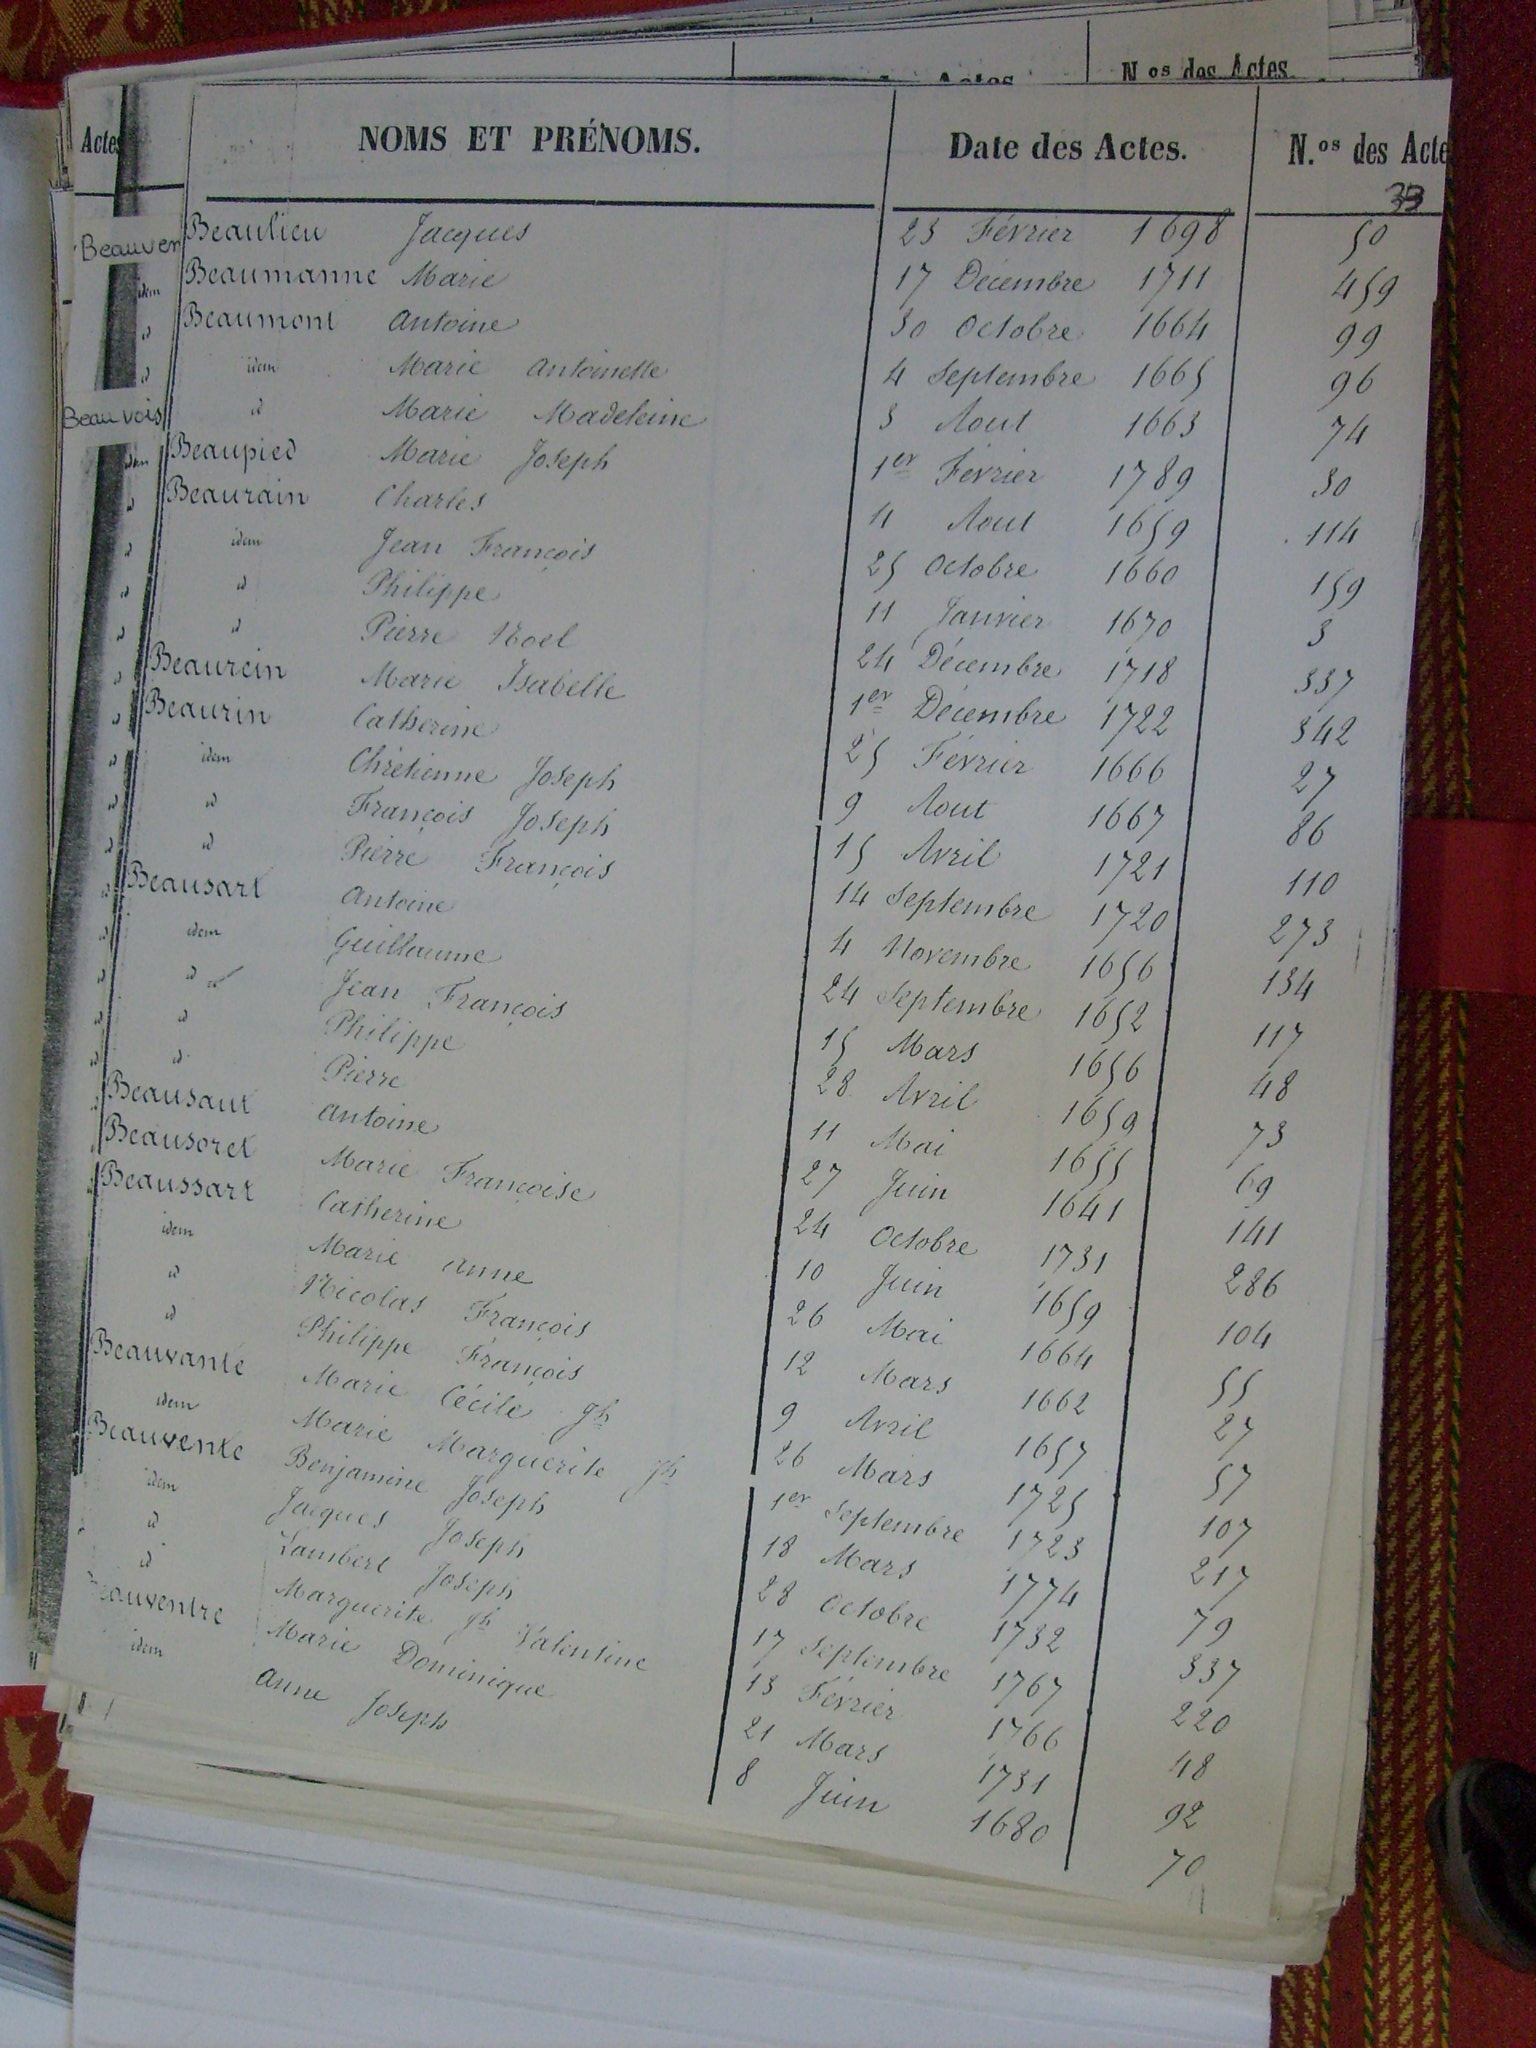 Actes N.os des Actes
Actes NOMS ET PRÉNOMS. Date des Actes. N.os des Acte
Beauven
Beauvois
Beaulieu Jacques 23 Février 1698 50
Beaumanne Marie 17 Décembre 1711 459
Beaumont Antoine 30 Octobre 1664 99
idem Marie Antoinette 4 Septembre 1665 96
id Marie Madeleine 3 Aout 1663 74
Beaupied Marie Joseph 1er Février 1789 30
Beaurain Charles 11 Aout 1659 114
idem Jean François 25 Octobre 1660 159
id Philippe 11 Janvier 1670 3
id Pierre Noel 24 Décembre 1718 337
Beaurein Marie Isabelle 1er Décembre 1722 342
Beaurin Catherine 25 Février 1666 27
idem Chrétienne Joseph 9 Aout 1667 86
id François Joseph 15 Avril 1721 110
id Pierre François 14 Septembre 1720 273
Beausart Antoine 4 Novembre 1656 134
idem Guillaume 24 Septembre 1652 117
id Jean François 15 Mars 1656 48
id Philippe 28 Avril 1659 73
id Pierre 11 Mai 1655 69
Beausaut Antoine 27 Juin 1641 141
Beausoret Marie Françoise 24 Octobre 1731 286
Beaussart Catherine 10 Juin 1659 104
idem Marie Anne 26 Mai 1664 55
id Nicolas François 12 Mars 1662 27
id Philippe François 9 Avril 1657 57
Beauvante Marie Cécile Jh 26 Mars 1725 107
idem Marie Marguerite Jh 1er Septembre 1723 217
Beauvente Benjamine Joseph 18 Mars 1774 79
idem Jacques Joseph 28 Octobre 1732 337
id Lambert Joseph 17 Septembre 1767 220
id Marguerite Jh Valentine 13 Février 1766 48
Beauventre Marie Dominique 21 Mars 1731 92
idem Anne Joseph 8 Juin 1680 70